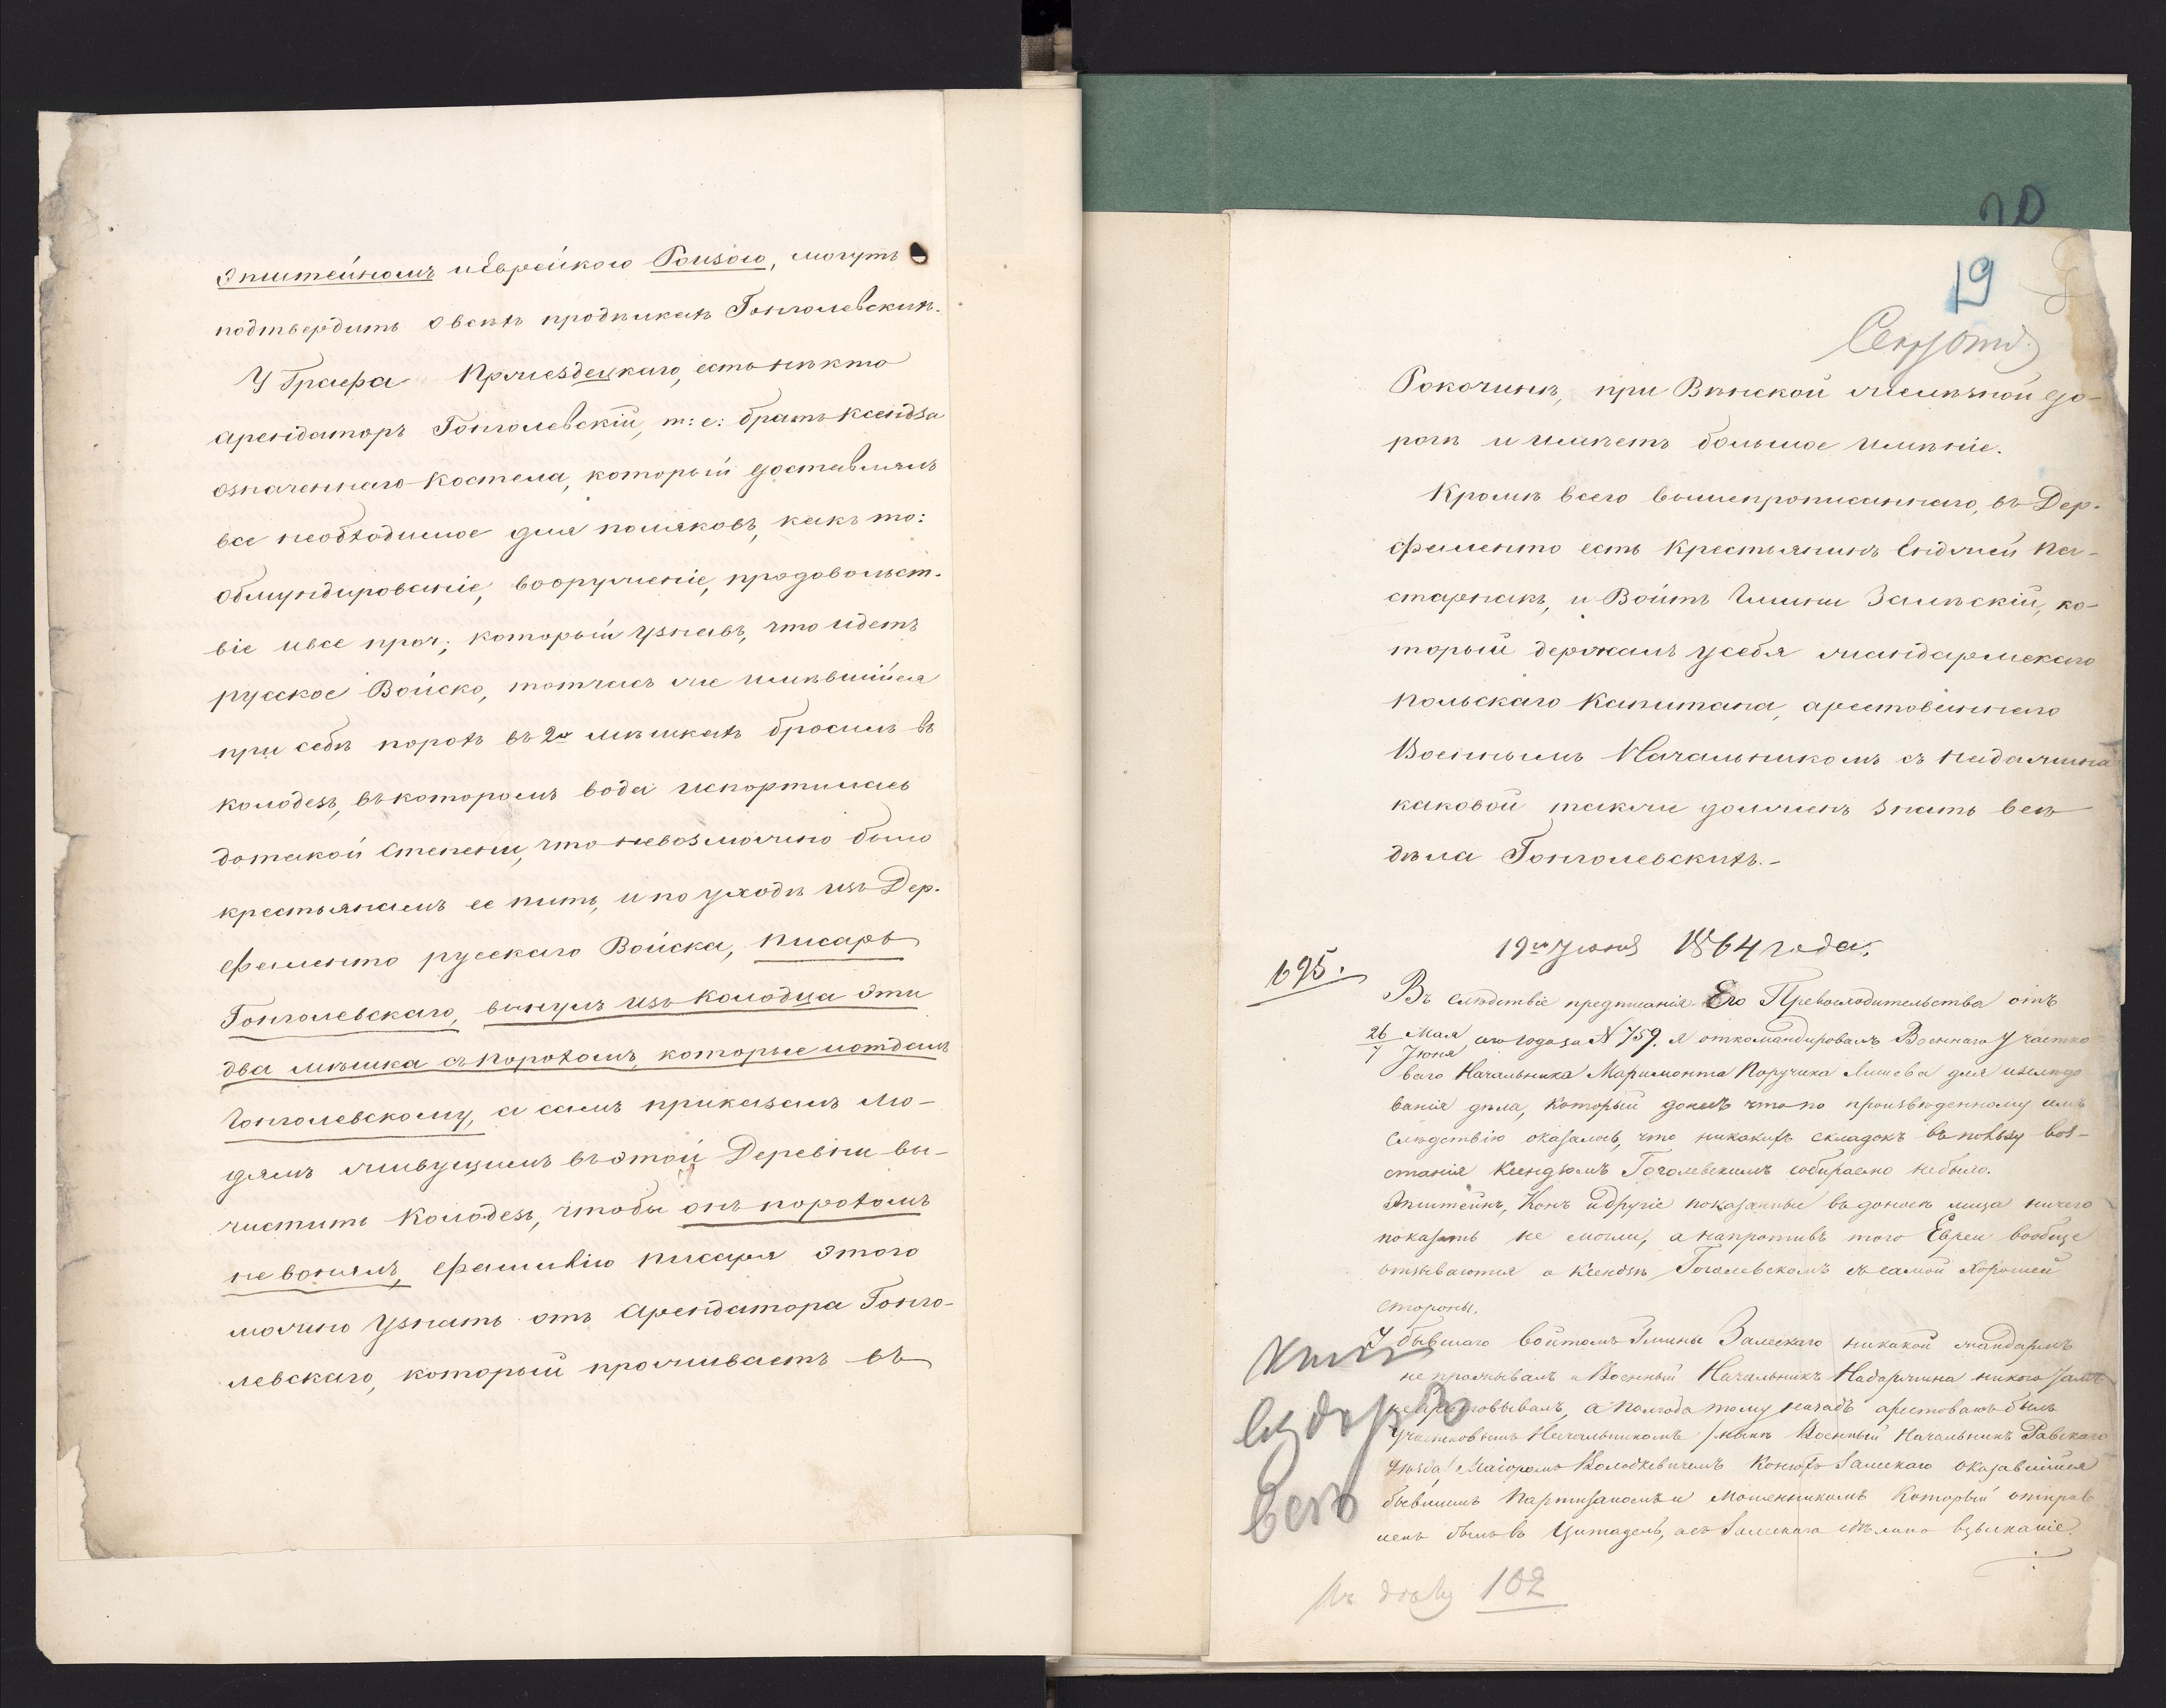 Эпштейномъ и Еврейкою Ройзою, могутъ
подтвердить о всѣхъ продѣлкахъ Гонголевскихъ.
У Графа Пржездецкаго, есть нѣкто
арендаторъ Гонголевскій, т: е: братъ Ксендза
означеннаго Костела, который доставлялъ
все необходимое для поляковъ, какъ то:
обмундированіе, вооруженіе, продовольст-
віе и все проч; который узнавъ, что идетъ
русское Войско, тотчасъ же имѣвшійся
при себѣ порохъ въ 2хъ мѣшкахъ бросилъ въ
колодезь, въ которомъ вода испортилась
до такой степени, что невозможно было
крестьянамъ ее пить, и по уходѣ изъ Дер.
Фаленто русскаго Войска, писарь
Гонголевскаго, вынулъ изъ Колодца эти
два мѣшка съ порохомъ, которые и отдалъ
Гонголевскому, а самъ приказалъ лю-
дямъ живущимъ въ этой Деревни вы-
чистить Колодезь, чтобы онъ порохомъ
не вонялъ, фамилію писаря этого
можно узнать отъ Арендатора Гонго-
левскаго, который проживаетъ въ
19
Рокочинѣ, при Вѣнской желѣзной до-
рогѣ и имѣетъ большое имѣніе.
Кромѣ всего вышепрописаннаго, въ Дер.
Фаленто есть Крестьянинъ Ендржей Па-
старнакъ, и Войтъ Гмины Залѣскій, ко-
торый держалъ у себя жандармскаго
польскаго Капитана, арестованнаго
Военнымъ Начальникомъ съ Надаржина
каковой также долженъ знать всѣ
дѣла Гонголевскихъ.-
19го Іюня 1864 года.
695.
Въ слѣдствіе предписанія Его Превосходительства отъ
26 Мая / 7 Іюня сего года за № 759. я откомандировалъ Военнаго Участко
ваго Начальника Маримонта Поручика Лишева для изслѣдо
ванія дѣла, который донесъ что по произведенному имъ
Слѣдствію оказалось, что никакихъ складокъ въ пользу воз-
станія Ксендзомъ Гоголевскимъ собираемо не было.
Эпштейнъ, Конъ и другіе показанные въ доносѣ лица ничего
показать не могли, а напротивъ того Евреи вообще
отзываются о Ксендзѣ Гоголевскомъ съ самой хорошей
стороны.
У бывшаго войтомъ Гмины Залескаго никакой жандармъ
не проживалъ и Военный Начальникъ Надаржина никого
не арестовывалъ, а полгода тому назадъ арестованъ былъ
Участковымъ Начальникомъ /нынѣ Военный Начальникъ Равскаго
Уѣзда/ Маіоромъ Колодкевичемъ Конюхъ Залескаго оказавшійся
бывшимъ Партизаномъ и Мошенникомъ который отправ
ленъ былъ въ Цитадель, а съ Залескаго сдѣлано взысканіе.
вздоръ
весь
Къ дѣлу 102